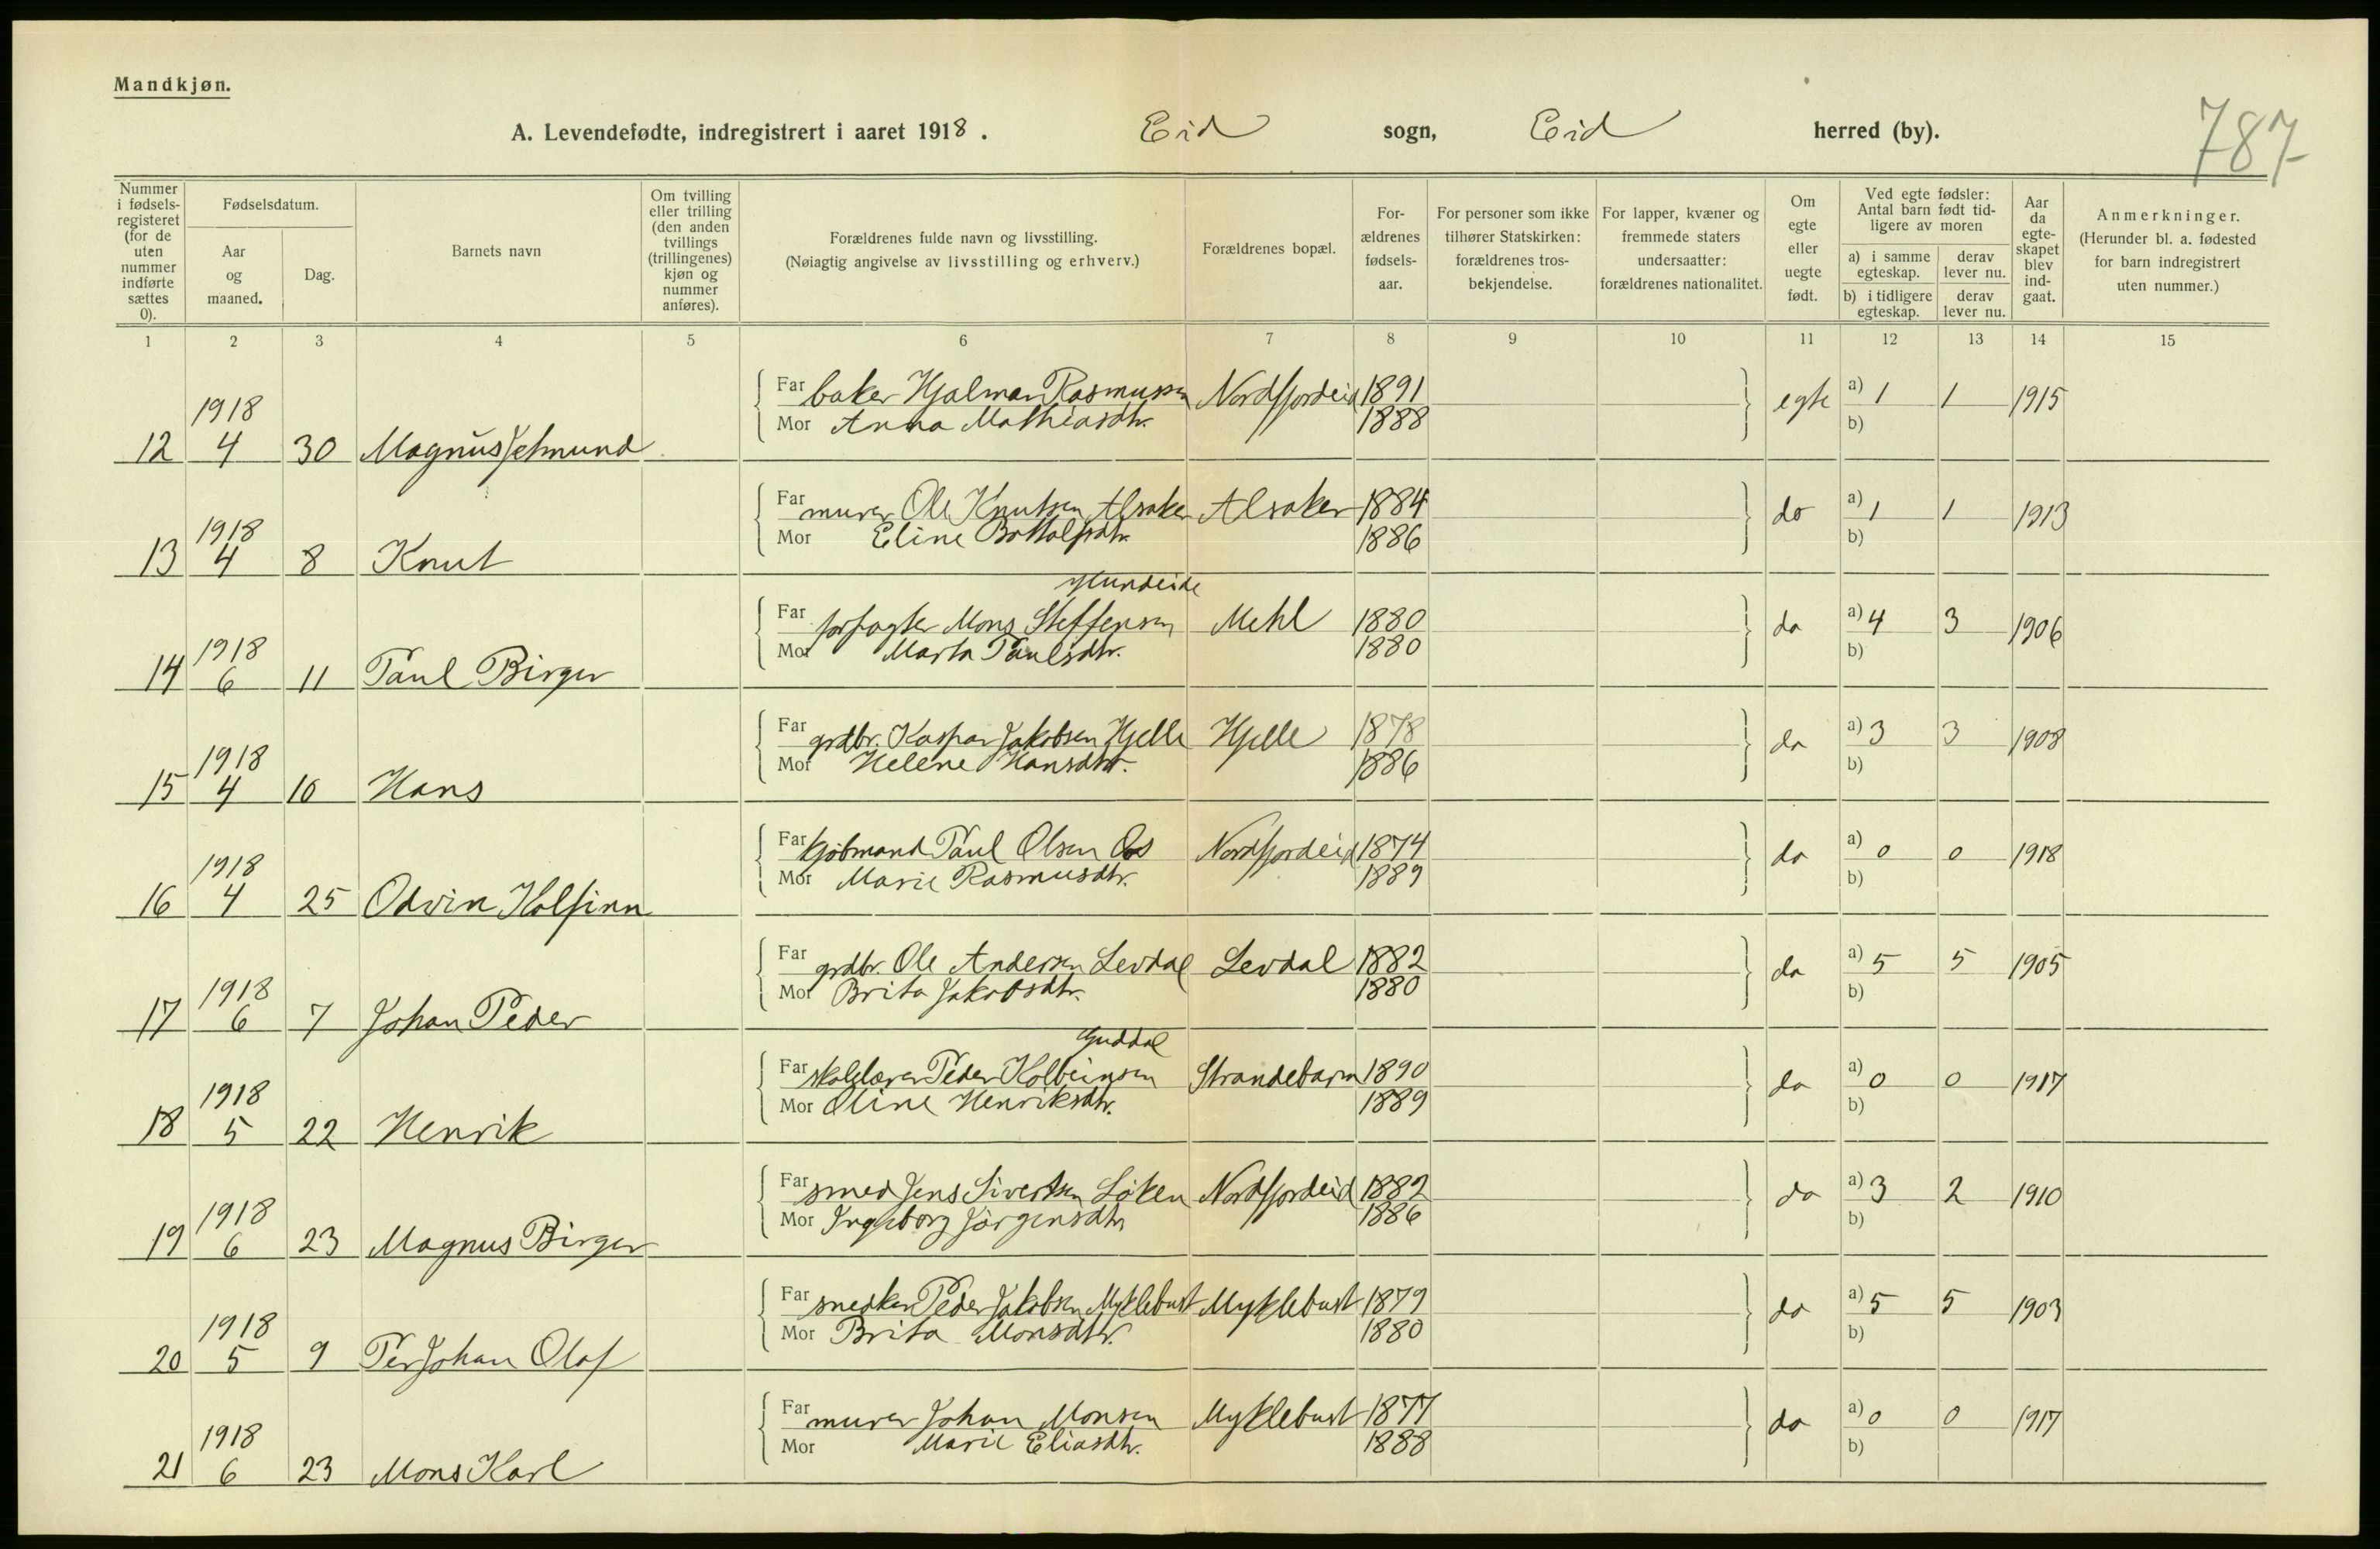 Mandkjøn.
A. Levendefødte, indregistrert i aaret 1918. Eid sogn, Eid herred (by).
787
Nummer i fødsels-registeret (for de uten nummer indførte sættes 0).
Fødselsdatum.
Aar og maaned.
Dag.
Barnets navn
Om tvilling eller trilling (den anden tvillings (trillingenes) kjøn og nummer anføres).
Forældrenes fulde navn og livsstilling.
(Nøiagtig angivelse av livsstilling og erhverv.)
Forældrenes bopæl.
For-ældrenes fødsels-aar.
For personer som ikke tilhører Statskirken: forældrenes tros-bekjendelse.
For lapper, kvæner og fremmede staters undersaatter: forældrenes nationalitet.
Om egte eller uegte født.
Ved egte fødsler: Antal barn født tid-ligere av moren
a) i samme egteskap.
derav lever nu.
b) i tidligere egteskap.
derav lever nu.
Aar da egte-skapet blev ind-gaat.
Anmerkninger.
(Herunder bl. a. fødested for barn indregistrert uten nummer.)
1 2 3 4 5 6 7 8 9 10 11 12 13 14 15
Far baker Hjalmar Rasmussen Nordfjordeid 1891 egte a) 1 1 1915
Mor Anna Mathiasdtr. 1888 b)
1918
12 4 30 Magnus Jetmund
Far murer Ole Knutsen Alsaker Alsaker 1884 do a) 1 1 1913
Mor Eline Bottolfsdtr. 1886 b)
1918
13 4 8 Knut
Hundeide
Far forpagter Mons Steffensen Mehl 1880 do a) 4 3 1906
Mor Marta Paulsdtr. 1880 b)
1918
14 6 11 Paul Birger
Far grdbr. Kaspar Jakobsen Hjelle Hjelle 1878 do a) 3 3 1908
Mor Helene Hansdtr. 1886 b)
1918
15 4 10 Hans
Far kjøbmand Paul Olsen Os Nordfjordeid 1874 do a) 0 0 1918
Mor Marie Rasmusdtr. 1889 b)
1918
16 4 25 Odvin Kolfinn
Far grdbr. Ole Andersen Levdal Levdal 1882 do a) 5 5 1905
Mor Brita Jakobsdtr. 1880 b)
1918
17 6 7 Johan Peder
Guddal
Far skolelærer Peder Kolbeinsen Strandebarm 1890 do a) 0 0 1917
Mor Oline Henriksdtr. 1889 b)
1918
18 5 22 Henrik
Far smed Jens Sivertsen Løken Nordfjordeid 1882 do a) 3 2 1910
Mor Ingeborg Jørgensdtr 1886 b)
1918
19 6 23 Magnus Birger
Far snedker Peder Jakobsen Myklebust Myklebust 1879 do a) 5 5 1903
Mor Brita Monsdtr. 1880 b)
1918
20 5 9 Per Johan Olaf
Far murer Johan Monsen Myklebust 1877 do a) 0 0 1917
Mor Marie Eliasdtr. 1888 b)
1918
21 6 23 Mons Karl